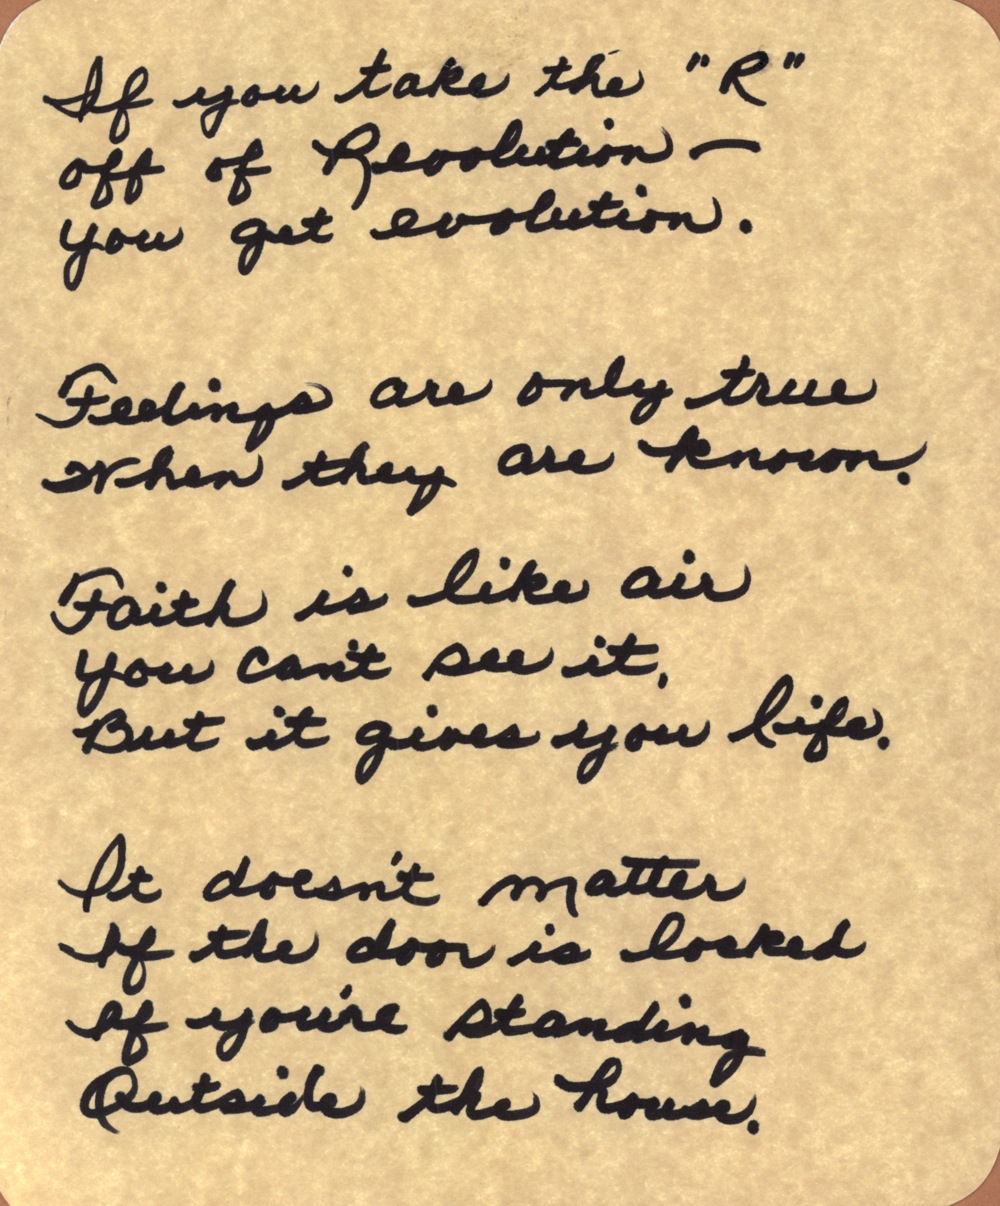 If you take the "R"
off of Revolution —
you get evolution.
Feelings are only true
When they are known.
Faith is like air
you can't see it,
But it gives you life.
It doesn't matter
If the door is locked
If you're standing
Outside the house.